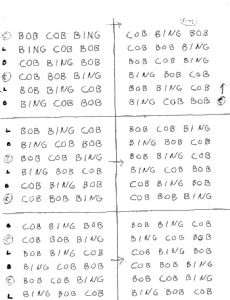 BOB COB BING COB BING BOB
BING COB BOB COB BOB BING
COB BING BOB BOB COB BING
COB BOB BING BING BOB COB
BOB BING COB BOB BING COB
BING COB BOB BING COB BOB
BOB COB BING BOB COB BING
BING COB BOB BING BOB COB
BOB COB BING BOB COB BING
BOB BING COB BING COB BOB
COB BING BOB COB BING BOB
COB BOB BING COB BOB BING
COB BING BOB BOB BING COB
COB BOB BING BING COB BOB
BOB BING COB COB BING BOB
BING COB BOB COB BOB BING
BOB COB BING BOB COB BING
BING BOB COB BING COB BOB